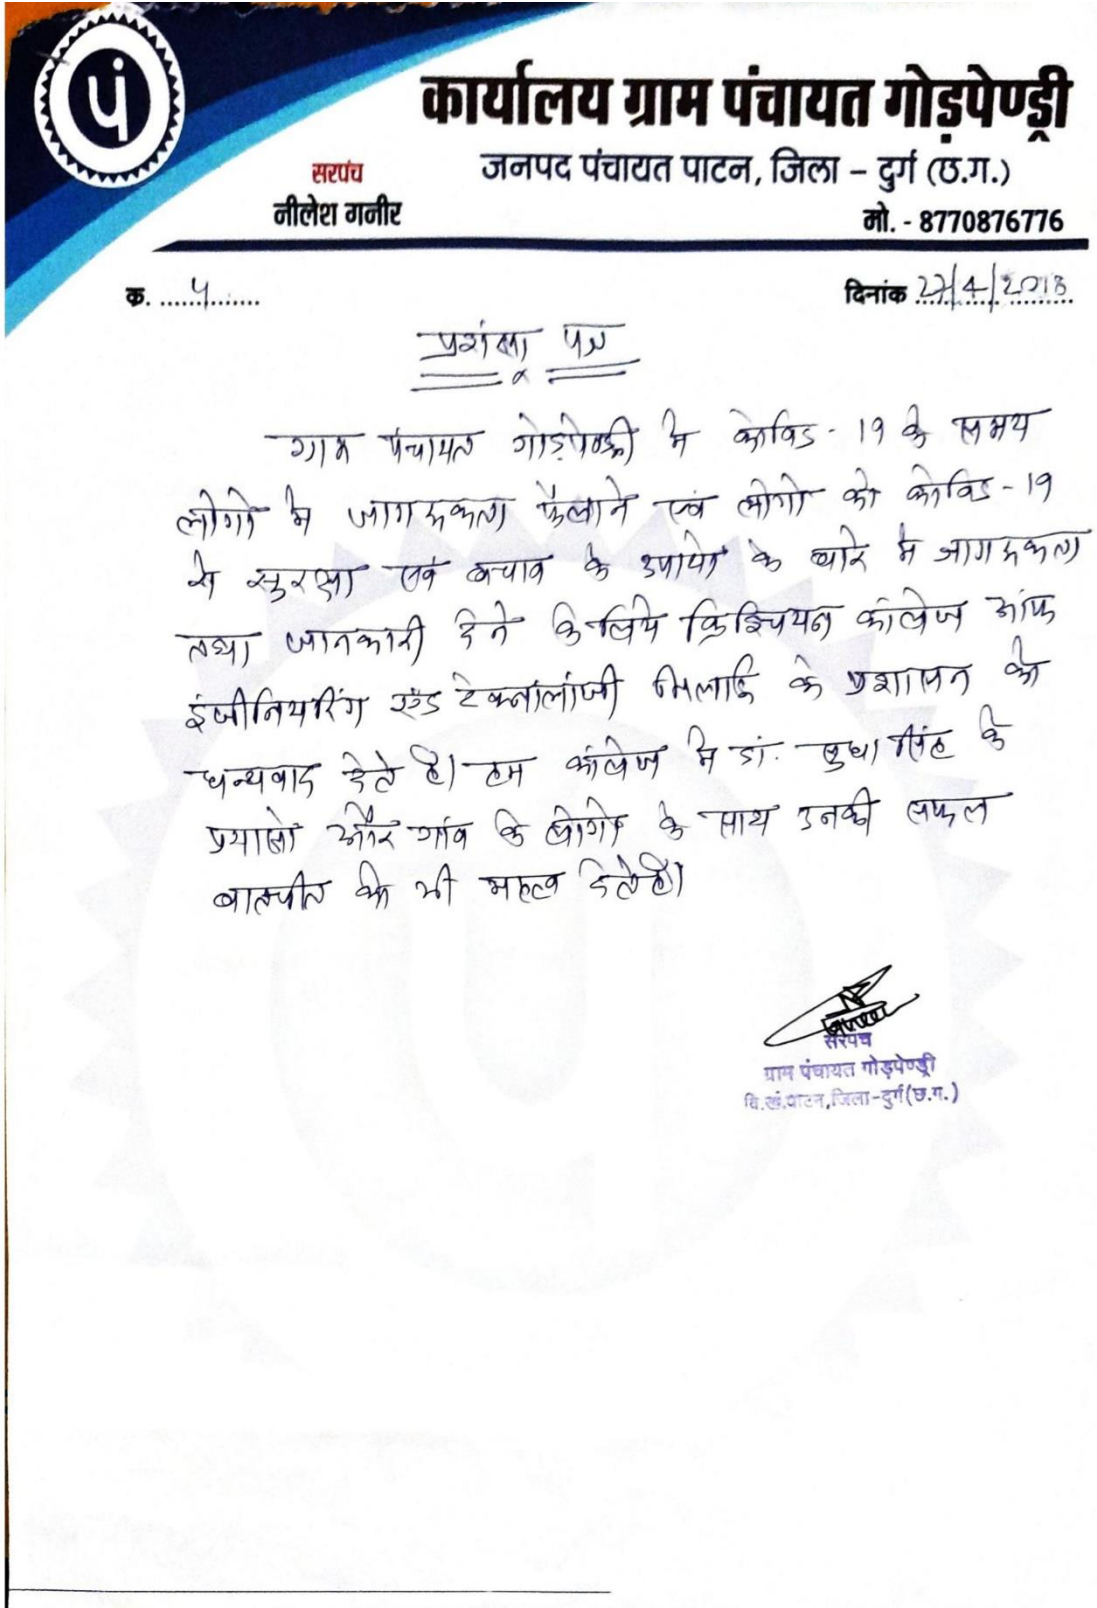 पं
कार्यालय ग्राम पंचायत गोड़पेण्ड्री
जनपद पंचायत पाटन, जिला – दुर्ग (छ.ग.)
सरपंच
नीलेश गनीर
मो. - 8770876776
क्र. ......५.......
दिनांक 27/4/2018
प्रशंसा पत्र
ग्राम पंचायत गोड़पेण्ड्री मे कोविड - 19 के समय
लोगो मे जागरूकता फैलाने एवं लोगो को कोविड - 19
से सुरक्षा एवं बचाव के उपायो के बारे मे जागरूकता
तथा जानकारी देने के लिये क्रिश्चियन कॉलेज ऑफ
इंजीनियरिंग एंड टेक्नालॉजी भिलाई के प्रशासन को
धन्यवाद देते है। हम कॉलेज मे डॉ. सुधा सिंह के
प्रयासो और गांव के लोगो के साथ उनकी सफल
बातचीत को भी महत्व देते है।
सरपंच
ग्राम पंचायत गोड़पेण्ड्री
वि.खं.पाटन,जिला-दुर्ग(छ.ग.)